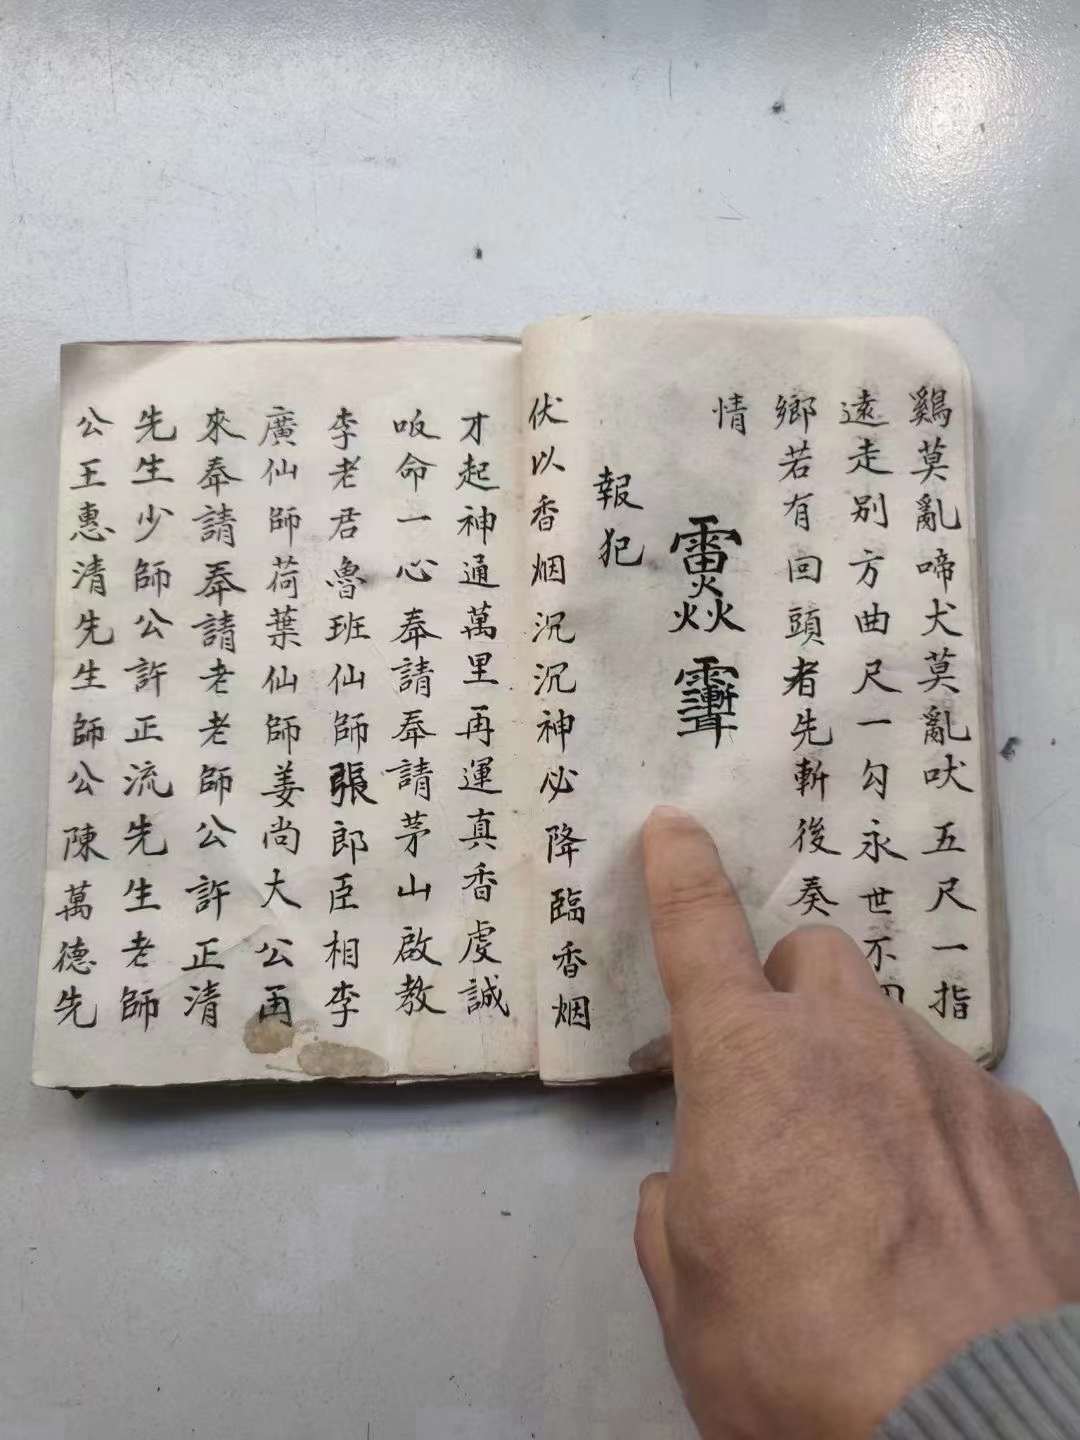 鷄莫亂啼犬莫亂吠五尺一指
遠走别方曲尺一勾永世不回
鄉若有回頭者先斬後奏
情
報犯
伏以香烟沉沉神必降臨香烟
才起神通萬里再運真香虔誠
皈命一心奉請奉請茅山啟教
李老君魯班仙師張郎臣相李
廣仙師荷葉仙師姜尚大公再
來奉請奉請老老師公許正清
先生少師公許正流先生老師
公王惠清先生師公陳萬德先